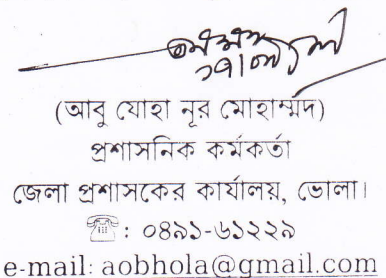 (আবু যোহা নূর মোহাম্মদ)
প্রশাসনিক কর্মকর্তা
জেলা প্রশাসকের কার্যালয়, ভোলা।
☎: ০৪৯১-৬১২২৯
e-mail: aobhola@gmail.com